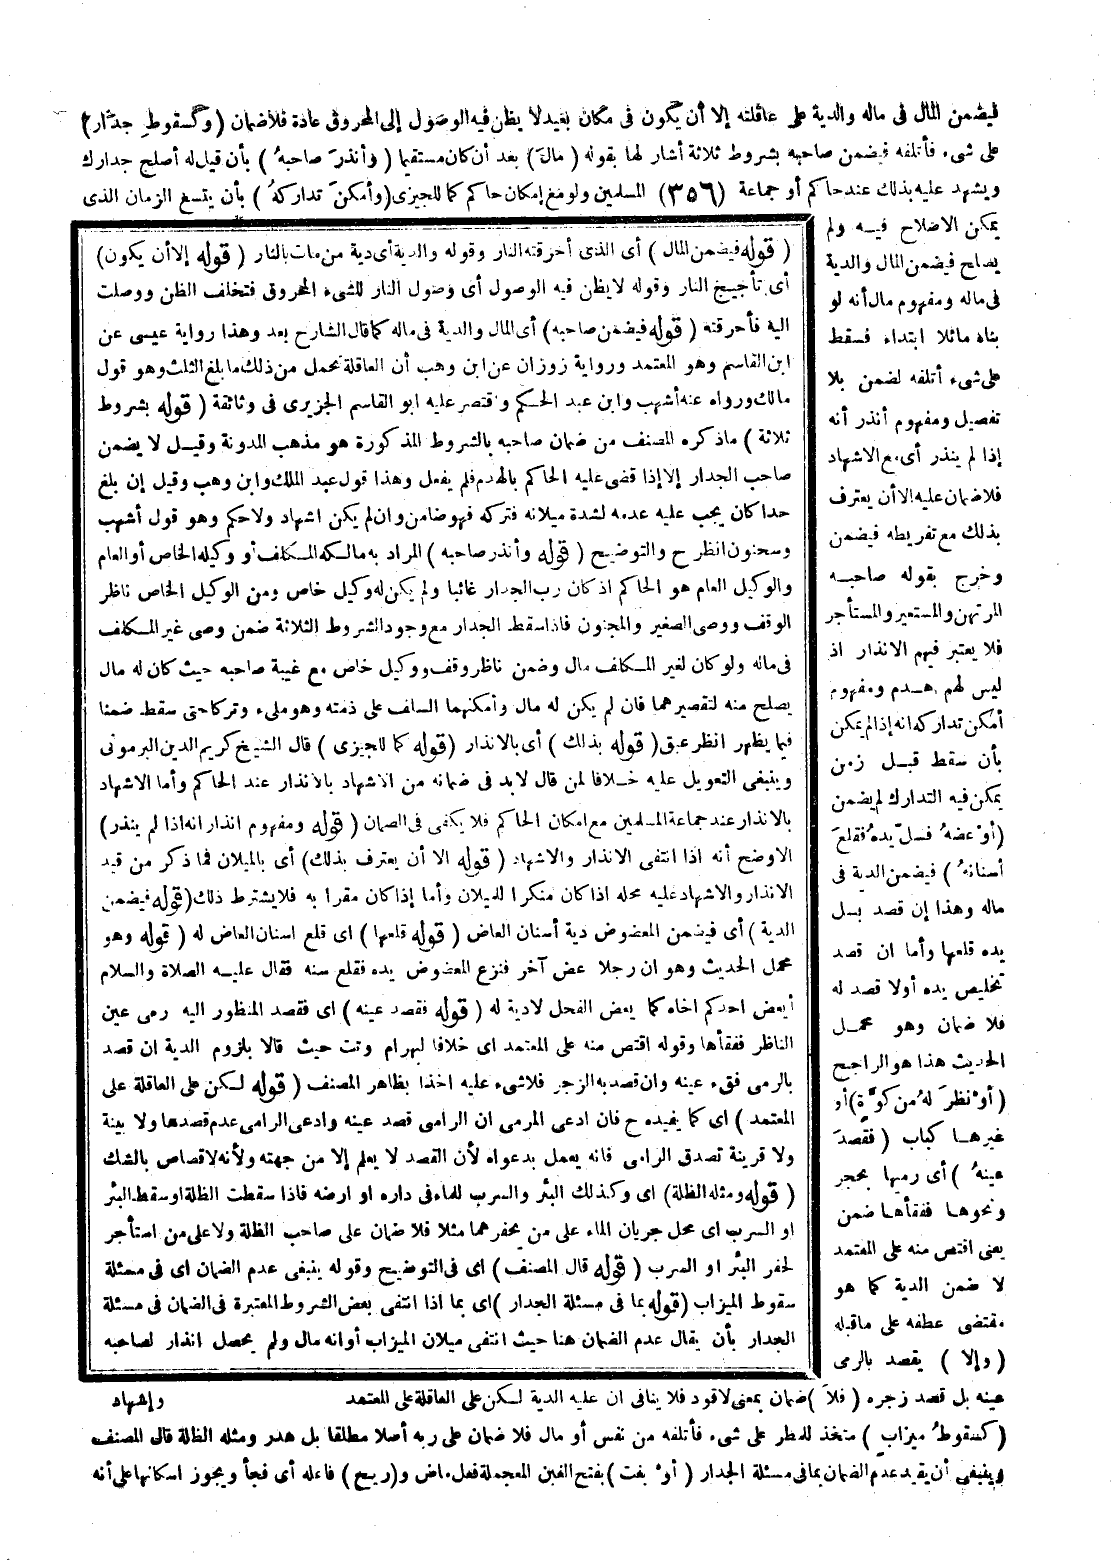 فيضمن المال فى ماله والدية على عاقلته إلا أن يكون فى مكان بعيد لا يظن فيه الوصول إلى المحروق عادة فلا ضمان (وكسقوط جدار)
على شىء فأتلفه فيضمن صاحبه بشروط ثلاثة أشار لها بقوله (مال) بعد أن كان مستقيما (وأنذر صاحبه) بأن قيل له أصلح جدارك
ويشهد عليه بذلك عند حاكم أو جماعة (٣٥٦) المسلمين ولو مع إمكان حاكم كما للجيزى (وأمكن تداركه) بأن يتسع الزمان الذى
يمكن الاصلاح فيه ولم
يصلح فيضمن المال والدية
فى ماله ومفهوم مال أنه لو
بناه مائلا ابتداء فسقط
على شىء أتلفه لضمن بلا
تفصيل ومفهوم أنذر أنه
إذا لم ينذر أى مع الاشهاد
فلا ضمان عليه إلا أن يعترف
بذلك مع تفريطه فيضمن
وخرج بقوله صاحبه
المرتهن والمستعير والمستأجر
فلا يعتبر فيهم الانذار اذ
ليس لهم هدم ومفهوم
أمكن تداركه انه إذا لم يمكن
بأن سقط قبل زمن
يمكن فيه التدارك لم يضمن
(أو عضه فسل يده فقلع
أسنانه) فيضمن الدية فى
ماله وهذا إن قصد بسل
يده قلعها وأما ان قصد
تخليص يده أولا قصد له
فلا ضمان وهو محمل
الحديث هذا هو الراجح
(أو نظر له من كوة) أو
غيرها كباب (فقصد
عينه) أى رميها بحجر
ونحوها ففقأها ضمن
يعنى اقتص منه على المعتمد
لا ضمن الدية كما هو
مقتضى عطفه على ماقبله
(وإلا) يقصد بالرمى
عينه بل قصد زجره (فلا) ضمان بمعنى لاقود فلا ينافى ان عليه الدية لكن على العاقلة على المعتمد
(كسقوط ميزاب) متخذ للمطر على شىء فأتلفه من نفس أو مال فلا ضمان على ربه أصلا مطلقا بل هدر ومثله الظلة قال المصنف
وينبغى أن يقيد عدم الضمان بما فى مسئلة الجدار (أو بغت) بفتح الغين المعجمة فعل ماض و(ريح) فاعله أى فجأ ويجوز اسكانها على أنه
(قوله فيضمن المال) أى الذى أحرقته النار وقوله والدية أى دية من مات بالنار (قوله إلا أن يكون)
أى تأجيج النار وقوله لا يظن فيه الوصول أى وصول النار للشىء المحروق فتخلف الظن ووصلت
اليه فأحرقته (قوله فيضمن صاحبه) أى المال والدية فى ماله كما قال الشارح بعد وهذا رواية عيسى عن
ابن القاسم وهو المعتمد ورواية زوزان عن ابن وهب أن العاقلة تحمل من ذلك ما بلغ الثلث وهو قول
مالك ورواه عنه أشهب وابن عبد الحكم واقتصر عليه ابو القاسم الجزيرى فى وثائقه (قوله بشروط
ثلاثة) ماذكره المصنف من ضمان صاحبه بالشروط المذكورة هو مذهب المدونة وقيل لا يضمن
صاحب الجدار إلا إذا قضى عليه الحاكم بالهدم فلم يفعل وهذا قول عبد الملك وابن وهب وقيل إن بلغ
حدا كان يجب عليه هدمه لشدة ميلانه فتركه فهو ضامن وان لم يكن اشهاد ولا حكم وهو قول أشهب
وسحنون انظر ح والتوضيح (قوله وأنذر صاحبه) المراد به مالكه المكلف أو وكيله الخاص أو العام
والوكيل العام هو الحاكم اذ كان رب الجدار غائبا ولم يكن له وكيل خاص ومن الوكيل الخاص ناظر
الوقف ووصى الصغير والمجنون فاذا سقط الجدار مع وجود الشروط الثلاثة ضمن وصى غير المكلف
فى ماله ولو كان لغير المكلف مال وضمن ناظر وقف ووكيل خاص مع غيبة صاحبه حيث كان له مال
يصلح منه لتقصيرهما فان لم يكن له مال وأمكنهما السلف على ذمته وهو ملىء وتركا حتى سقط ضمنا
فيما يظهر انظر عبق (قوله بذلك) أى بالانذار (قوله كما للجيزى) قال الشيخ كريم الدين البرمونى
وينبغى التعويل عليه خلافا لمن قال لابد فى ضمانه من الاشهاد بالانذار عند الحاكم وأما الاشهاد
بالانذار عند جماعة المسلمين مع امكان الحاكم فلا يكفى فى الضمان (قوله ومفهوم انذار انه اذا لم ينذر)
الاوضح أنه اذا انتفى الانذار والاشهاد (قوله الا أن يعترف بذلك) أى بالميلان فما ذكر من قيد
الانذار والاشهاد عليه محله اذا كان منكرا للميلان وأما إذا كان مقرا به فلا يشترط ذلك (قوله فيضمن
الدية) أى فيضمن المعضوض دية أسنان العاض (قوله قلعها) اى قلع اسنان العاض له (قوله وهو
محمل الحديث وهو ان رجلا عض آخر فنزع المعضوض يده فقلع سنه فقال عليه الصلاة والسلام
أيعض احدكم اخاه كما يعض الفحل لادية له (قوله فقصد عينه) اى فقصد المنظور اليه رمى عين
الناظر ففقأها وقوله اقتص منه على المعتمد اى خلافا لبهرام وتت حيث قالا بلزوم الدية ان قصد
بالرمى فقء عينه وان قصد به الزجر فلاشىء عليه اخذا بظاهر المصنف (قوله لكن على العاقلة على
المعتمد) اى كما يفيده ح فان ادعى المرمى ان الرامى قصد عينه وادعى الرامى عدم قصدها ولا بينة
ولا قرينة تصدق الرامى فانه يعمل بدعواه لأن القصد لا يعلم إلا من جهته ولأنه لاقصاص بالشك
(قوله ومثله الظلة) اى وكذلك البئر والسرب للماء فى داره او ارضه فاذا سقطت الظلة او سقط البئر
او السرب اى محل جريان الماء على من يحفرهما مثلا فلا ضمان على صاحب الظلة ولا على من استأجر
لحفر البئر او السرب (قوله قال المصنف) اى فى التوضيح وقوله ينبغى عدم الضمان اى فى مسئلة
سقوط الميزاب (قوله بما فى مسئلة الجدار) اى بما اذا انتفى بعض الشروط المعتبرة فى الضمان فى مسئلة
الجدار بأن يقال عدم الضمان هنا حيث انتفى ميلان الميزاب أو انه مال ولم يحصل انذار لصاحبه
وإشهاد